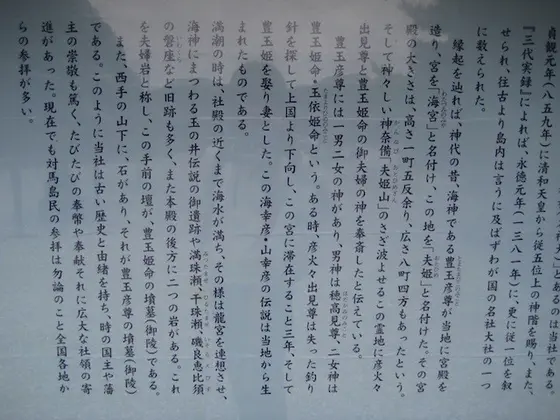 貞観元年(八五九年)に清和天皇から従五位上の神階を賜り、また、
『三代実録』によれば、永徳元年(一三八一年)に、更に従一位を叙
せられ、往古より島内は言うに及ばずわが国の名社大社の一つ
に数えられた。
縁起を辿れば、神代の昔、海神である豊玉彦尊が当地に宮殿を
造り、宮を「海宮」と名付け、この地を「夫姫」と名付けた。その宮
殿の大きさは、高さ一町五反余り、広さ八町四方もあったという。
そして神々しい神奈備「夫姫山」のさざ波よせるこの霊地に彦火々
出見尊と豊玉姫命の御夫婦の神を奉斎したと伝えている。
豊玉彦尊には一男二女の神があり、男神は穂高見尊、二女神は
豊玉姫命・玉依姫命という。ある時、彦火々出見尊は失った釣り
針を探して上国より下向し、この宮に滞在すること三年、そして
豊玉姫を娶り妻とした。この海幸彦・山幸彦の伝説は当地から生
まれたものである。
満潮の時は、社殿の近くまで海水が満ち、その様は龍宮を連想させ、
海神にまつわる玉の井伝説の御遺跡や満珠瀬、干珠瀬、磯良恵比須
の磐座など旧跡も多く、また本殿の後方に二つの岩がある。これ
を夫婦岩と称し、この手前の壇が、豊玉姫命の墳墓(御陵)である。
また、西手の山下に、石があり、それが豊玉彦尊の墳墓(御陵)
である。このように当社は古い歴史と由緒を持ち、時の国主や藩
主の崇敬も篤く、たびたびの奉幣や奉献それに広大な社領の寄
進があった。現在でも対馬島民の参拝は勿論のこと全国各地か
らの参拝が多い。